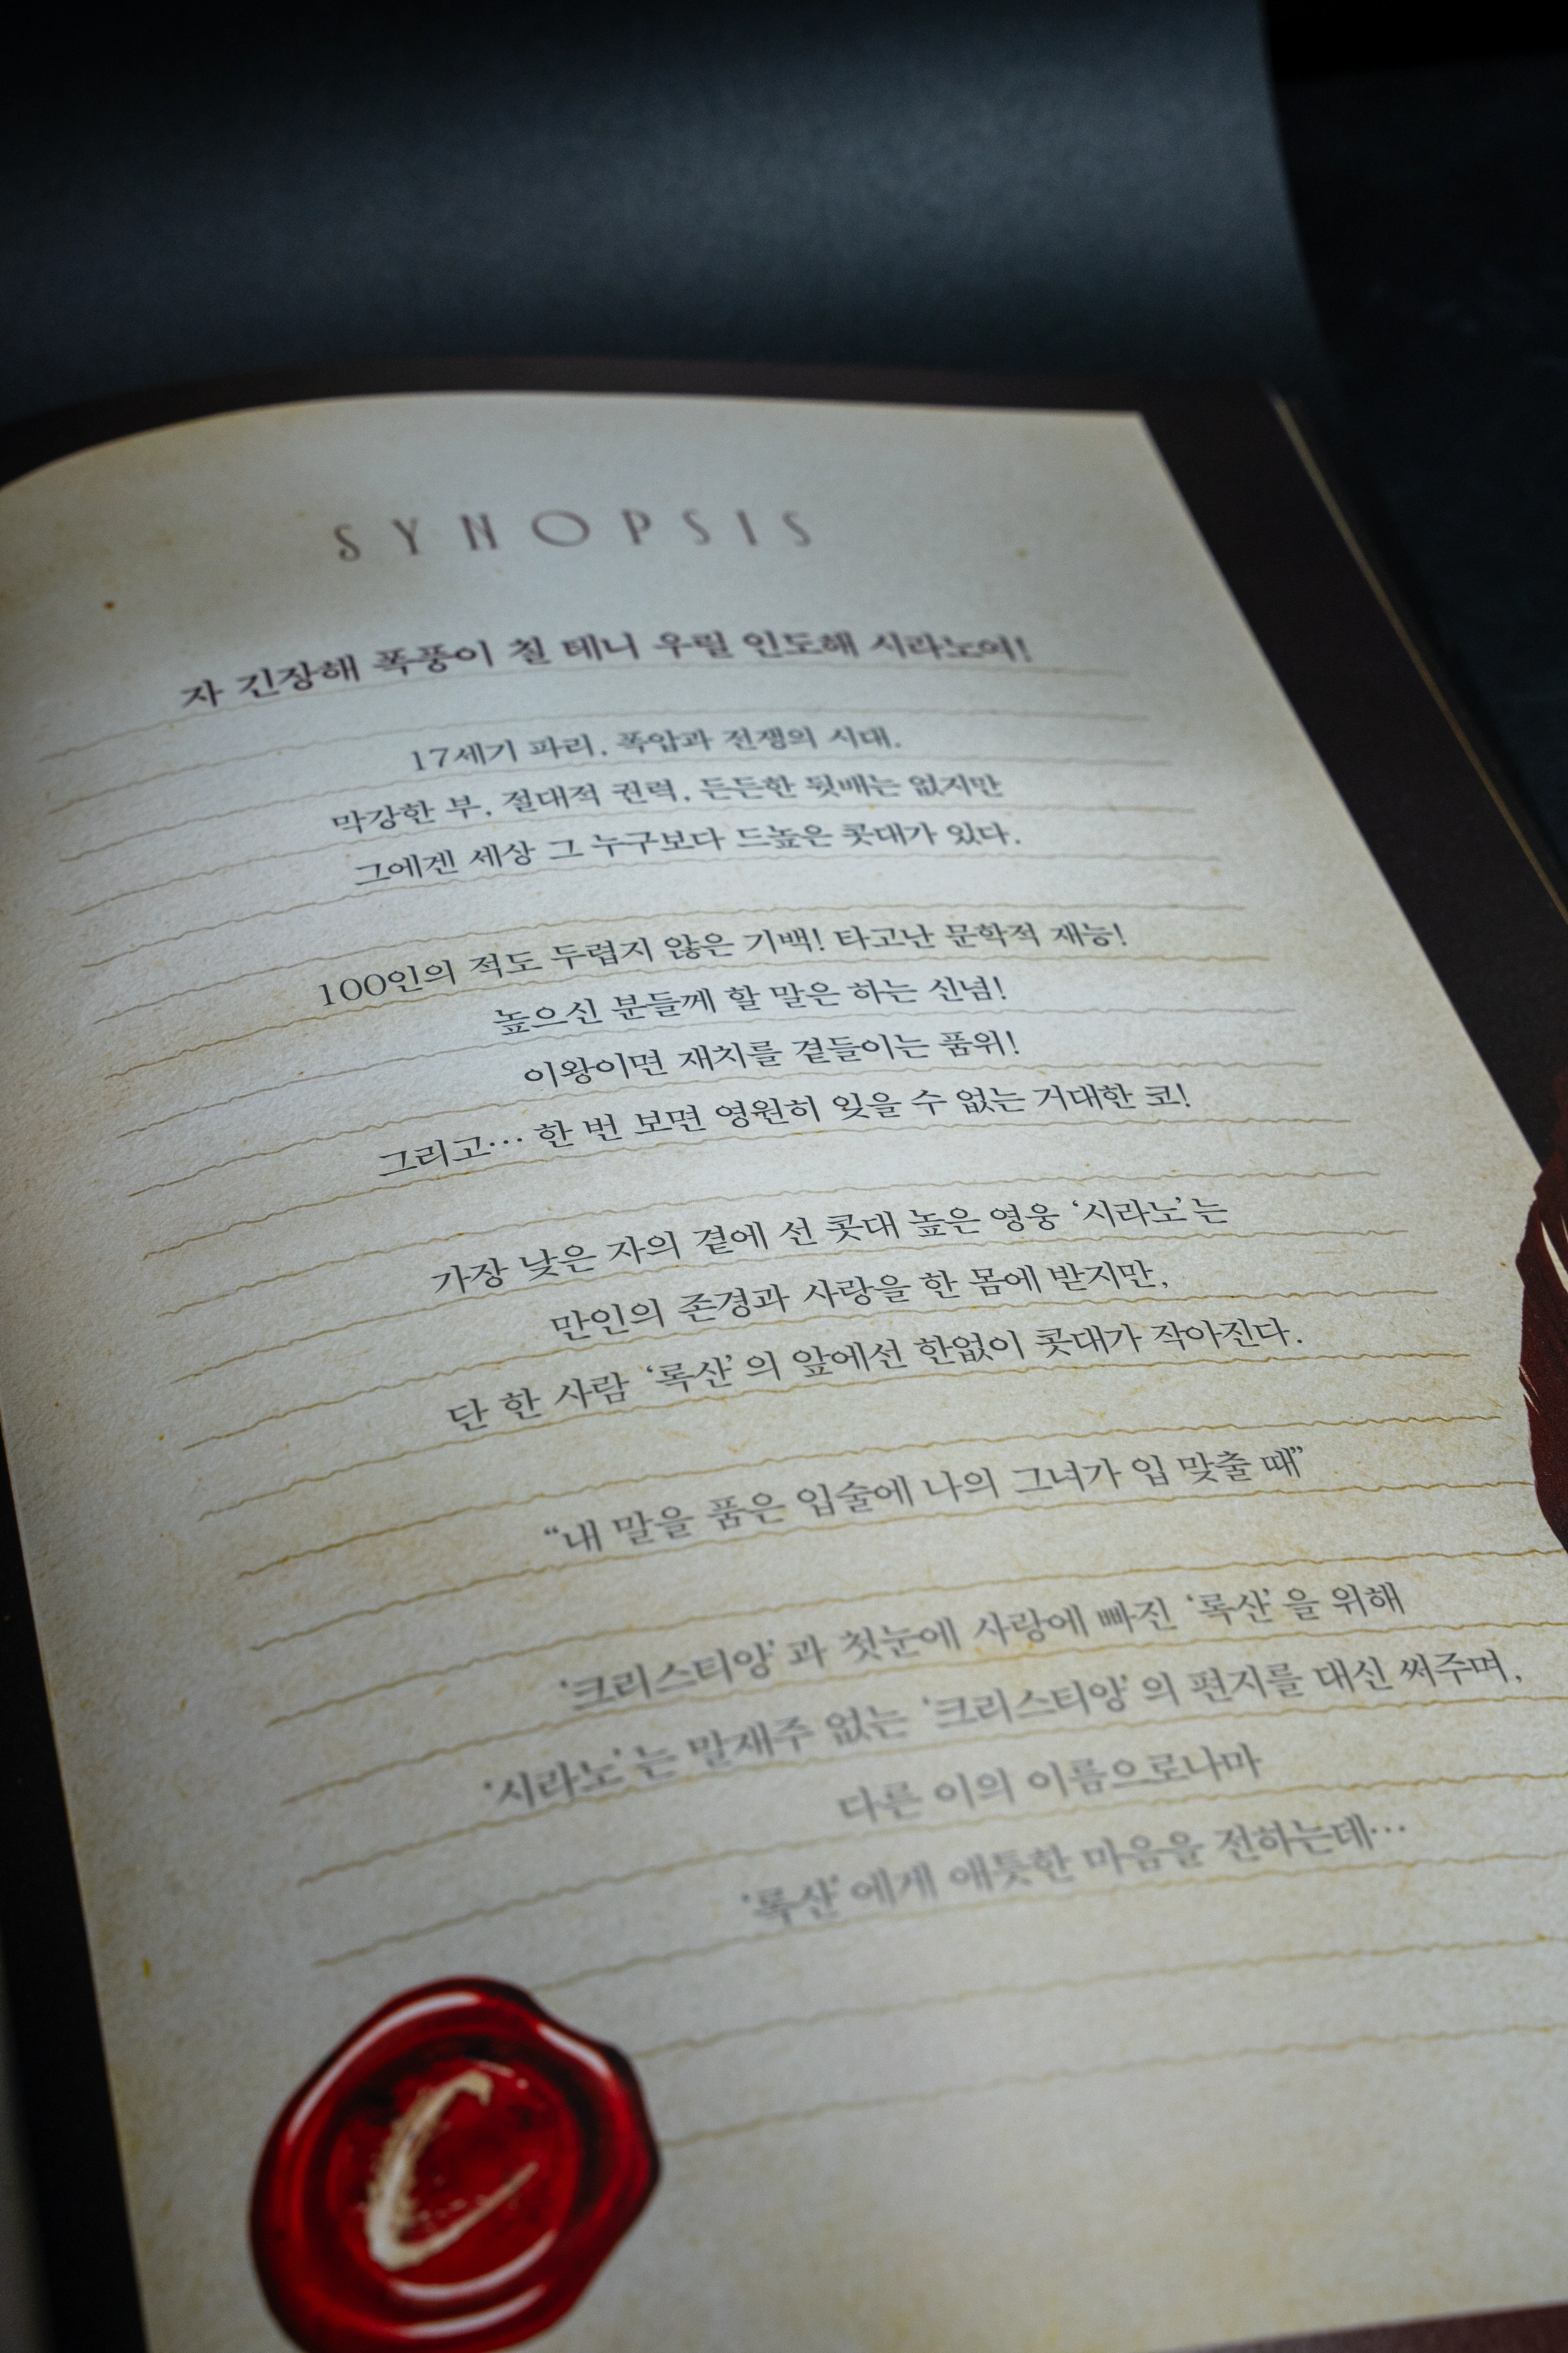 SYNOPSIS
자 긴장해 폭풍이 칠 테니 우릴 인도해 시라노여!
17세기 파리, 폭압과 전쟁의 시대.
막강한 부, 절대적 권력, 든든한 뒷배는 없지만
그에겐 세상 그 누구보다 드높은 콧대가 있다.
100인의 적도 두렵지 않은 기백! 타고난 문학적 재능!
높으신 분들께 할 말은 하는 신념!
이왕이면 재치를 곁들이는 품위!
그리고… 한 번 보면 영원히 잊을 수 없는 거대한 코!
가장 낮은 자의 곁에 선 콧대 높은 영웅 ‘시라노’는
만인의 존경과 사랑을 한 몸에 받지만,
단 한 사람 ‘록산’의 앞에선 한없이 콧대가 작아진다.
“내 말을 품은 입술에 나의 그녀가 입 맞출 때”
‘크리스티앙’과 첫눈에 사랑에 빠진 ‘록산’을 위해
‘시라노’는 말재주 없는 ‘크리스티앙’의 편지를 대신 써주며,
다른 이의 이름으로나마
‘록산’에게 애틋한 마음을 전하는데…
C